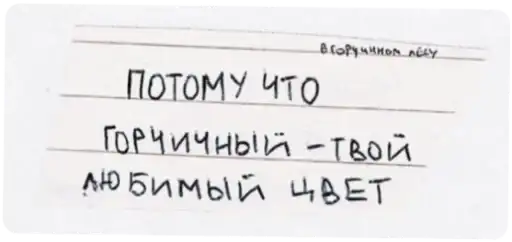 в горчичном лесу
ПОТОМУ ЧТО
ГОРЧИЧНЫЙ – ТВОЙ
ЛЮБИМЫЙ ЦВЕТ